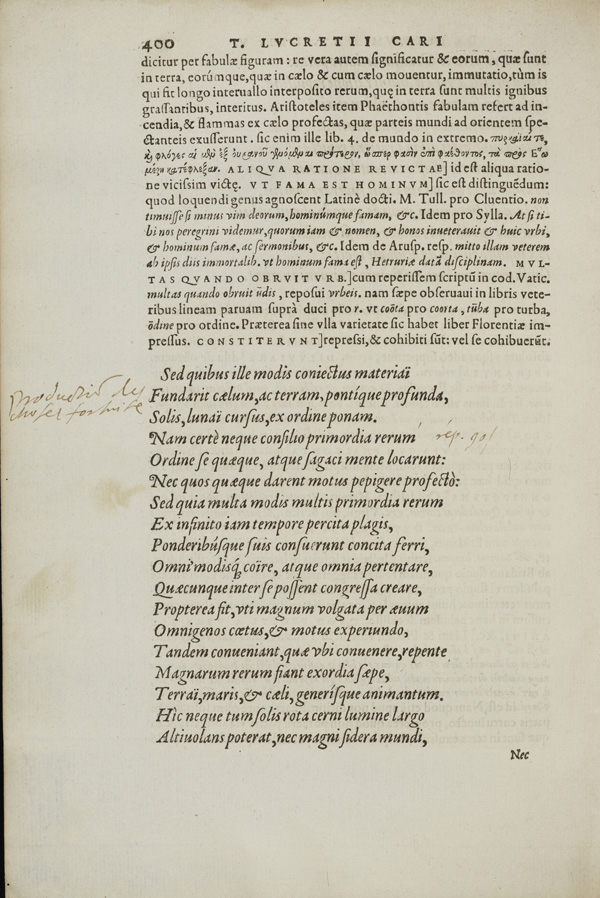 400 T. LVCRETII CARI
dicitur per fabulæ figuram : re vera autem significatur & eorum, quæ sunt
in terra, eorúmque, quæ in cælo & cum cælo mouentur, immutatio, tùm is
qui fit longo interuallo interposito rerum, quę in terra sunt multis ignibus
grassantibus, interitus. Aristoteles item Phaëthontis fabulam refert ad in-
cendia, & flammas ex cælo profectas, quæ parteis mundi ad orientem spe-
ctanteis exusserunt. sic enim ille lib. 4. de mundo in extremo. πυρκαϊαί τε,
καὶ φλόγες αἱ μὲν ἐξ οὐρανοῦ γενόμεναι πρότερον, ὥσπερ φασὶν ἐπὶ φαέθοντος, τὰ πρὸς Ἕω
μέρη κατέφλεξαν. ALIQVA RATIONE REVICTAE] id est aliqua ratio-
ne vicissim victę. VT FAMA EST HOMINVM] sic est distinguēdum:
quod loquendi genus agnoscent Latinè docti. M. Tull. pro Cluentio. non
timuisse si minus vim deorum, hominúmque famam, &c. Idem pro Sylla. At si ti-
bi nos peregrini videmur, quorum iam & nomen, & honos inueterauit & huic vrbi,
& hominum famæ, ac sermonibus, &c. Idem de Arusp. resp. mitto illam veterem
ab ipsis diis immortalib. vt hominum fama est, Hetruriæ datā disciplinam. MVL-
TAS QVANDO OBRVIT VRB.] cum reperissem scriptū in cod. Vatic.
multas quando obruit ūdis, reposui vrbeis. nam sæpe obseruaui in libris vete-
ribus lineam paruam suprà duci pro r. vt coōta pro coorta, tūba pro turba,
ōdine pro ordine. Præterea sine vlla varietate sic habet liber Florentiæ im-
pressus. CONSTITERVNT] repressi, & cohibiti sūt: vel se cohibuerūt.
Sed quibus ille modis coniectus materiaï
Fundarit cælum, ac terram, pontíque profunda,
Solis, lunaï cursus, ex ordine ponam.
Nam certè neque consilio primordia rerum
Ordine se quæque, atque sagaci mente locarunt:
Nec quos quæque darent motus pepigere profectò:
Sed quia multa modis multis primordia rerum
Ex infinito iam tempore percita plagis,
Ponderibúsque suis consuerunt concita ferri,
Omnimodisq́; coïre, atque omnia pertentare,
Quæcunque inter se possent congressa creare,
Propterea fit, vti magnum volgata per æuum
Omnigenos cœtus, & motus experiundo,
Tandem conueniant, quæ vbi conuenere, repente
Magnarum rerum fiant exordia sæpe,
Terraï, maris, & cæli, generísque animantum.
Hîc neque tum solis rota cerni lumine largo
Altiuolans poterat, nec magni sidera mundi,
Nec
Production des
choses fortuite
rép. 90